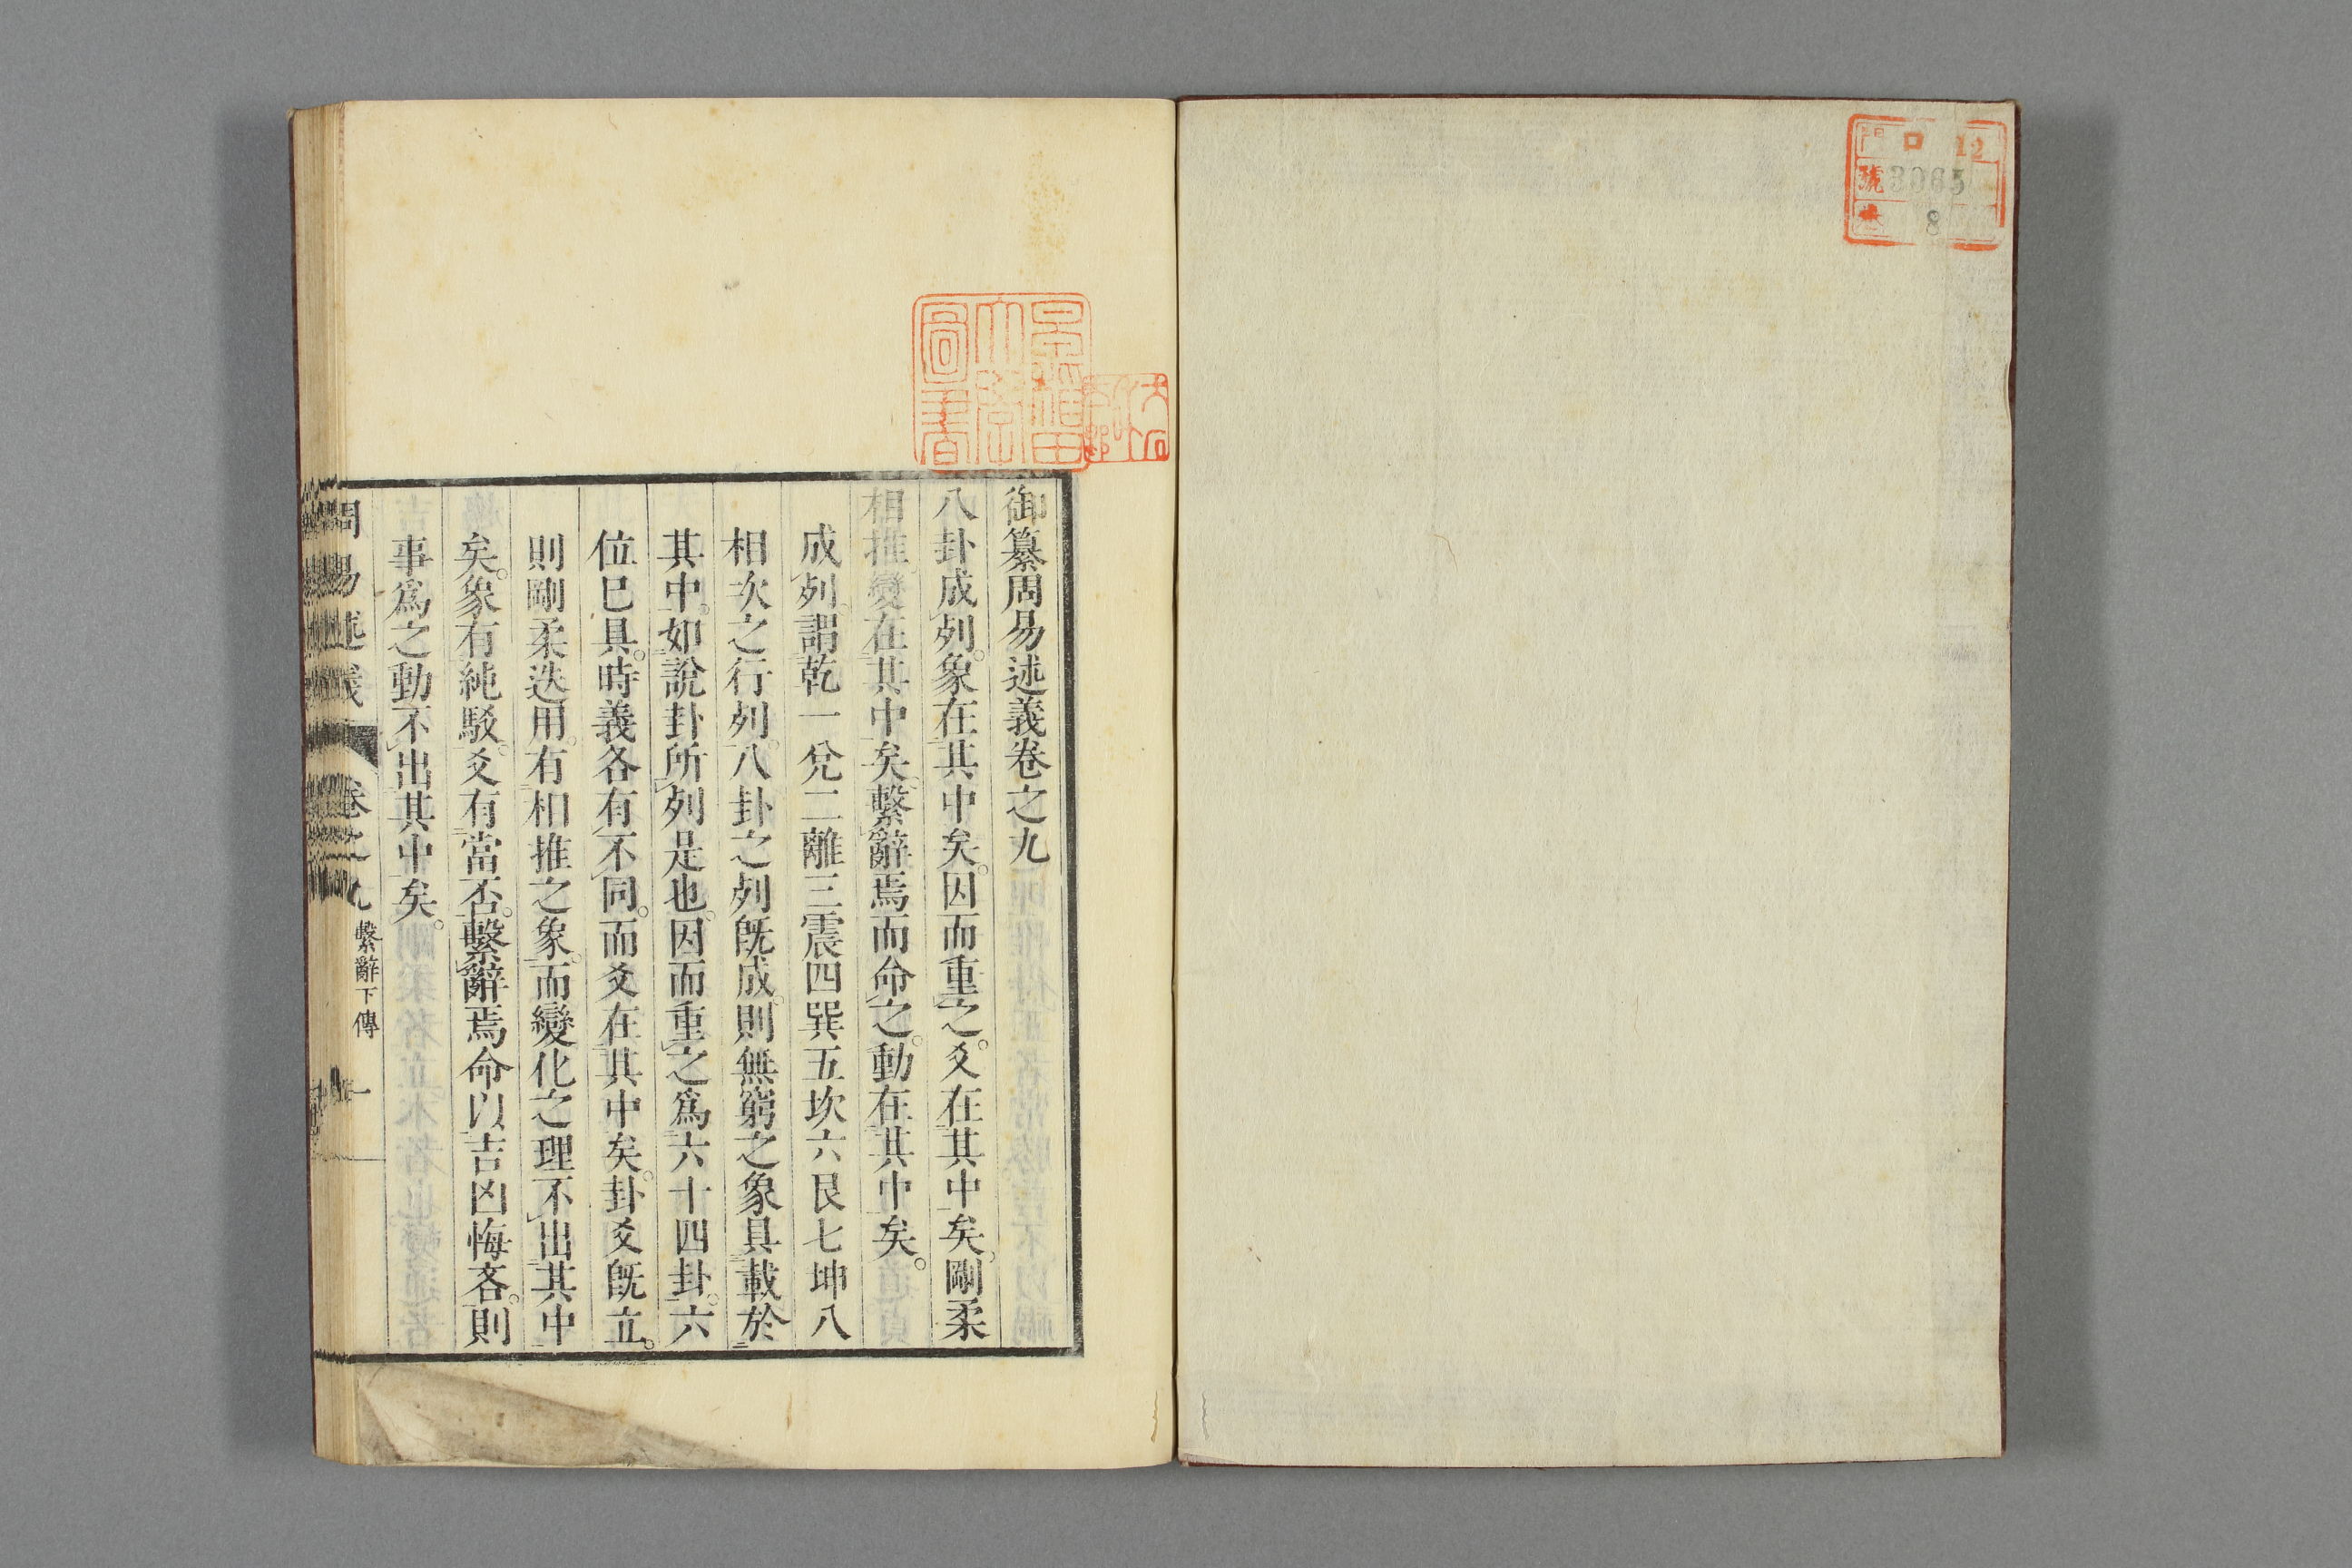 門 ロ 12
號 3065
卷 8
御纂周易述義卷之九
八卦成列。象在其中矣。因而重之。爻在其中矣。剛柔
相推。變在其中矣。繫辭焉而命之。動在其中矣。
成列。謂乾一兌二離三震四巽五坎六艮七坤八
相次之行列。八卦之列旣成。則無窮之象具載於
其中。如說卦所列是也。因而重之爲六十四卦。六
位已具。時義各有不同。而爻在其中矣。卦爻旣立。
則剛柔迭用。有相推之象。而變化之理不出其中
矣。象有純駁。爻有當否。繫辭焉命以吉凶悔吝。則
事爲之動不出其中矣。
周易述義 卷之九 繫辭下傳 一